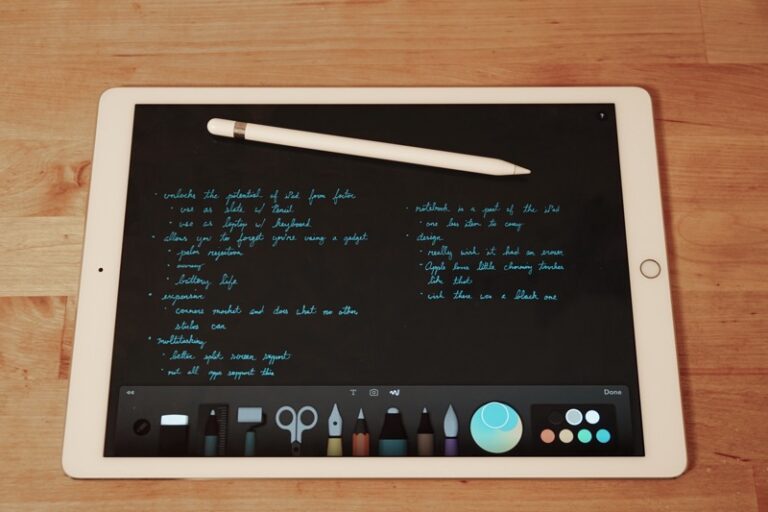 • unlocks the potential of iPad form factor
• use as slate w/ Pencil
• use as laptop w/ keyboard
• allows you to forget you're using a gadget
• palm rejection
• battery life
• expensive
• corners market and does what no other
stylus can
• multitasking
• better split screen support
• not all apps support this
• notebook is a part of the iPad
• one less item to carry
• design
• really wish it had an eraser
• Apple loves little charming touches
like that
• wish there was a black one
T
Done